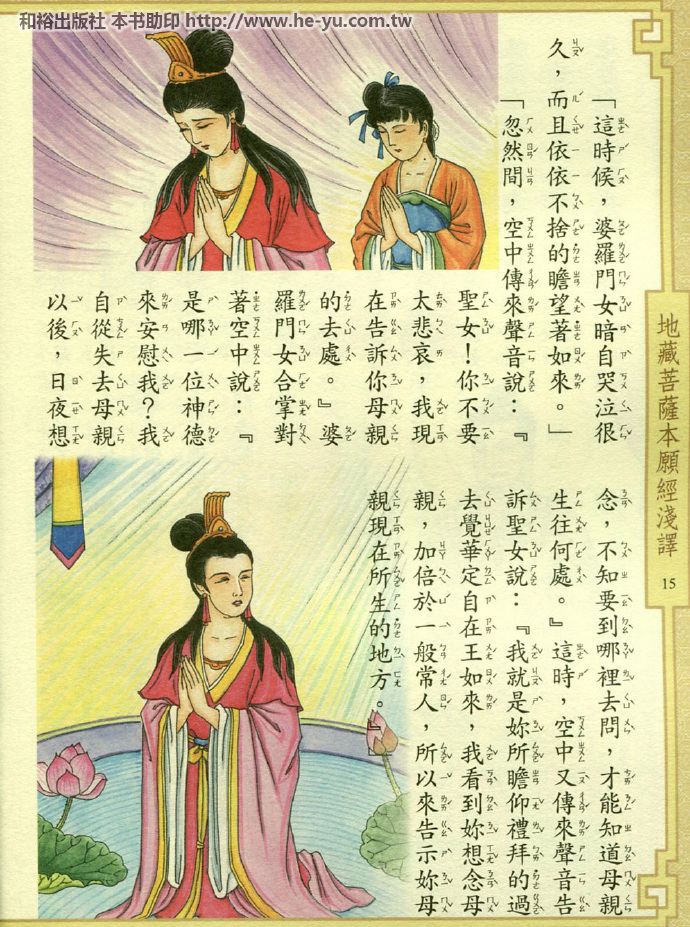 和裕出版社 本书助印 http://www.he-yu.com.tw
「這時候，婆羅門女暗自哭泣很
久，而且依依不捨的瞻望著如來。」
「忽然間，空中傳來聲音說：『
聖女！你不要
太悲哀，我現
在告訴你母親
的去處。』婆
羅門女合掌對
著空中說：『
是哪一位神德
來安慰我？我
自從失去母親
以後，日夜想
念，不知要到哪裡去問，才能知道母親
生往何處。』這時，空中又傳來聲音告
訴聖女說：『我就是妳所瞻仰禮拜的過
去覺華定自在王如來，我看到妳想念母
親，加倍於一般常人，所以來告示妳母
親現在所生的地方。』
地藏菩薩本願經淺譯
15